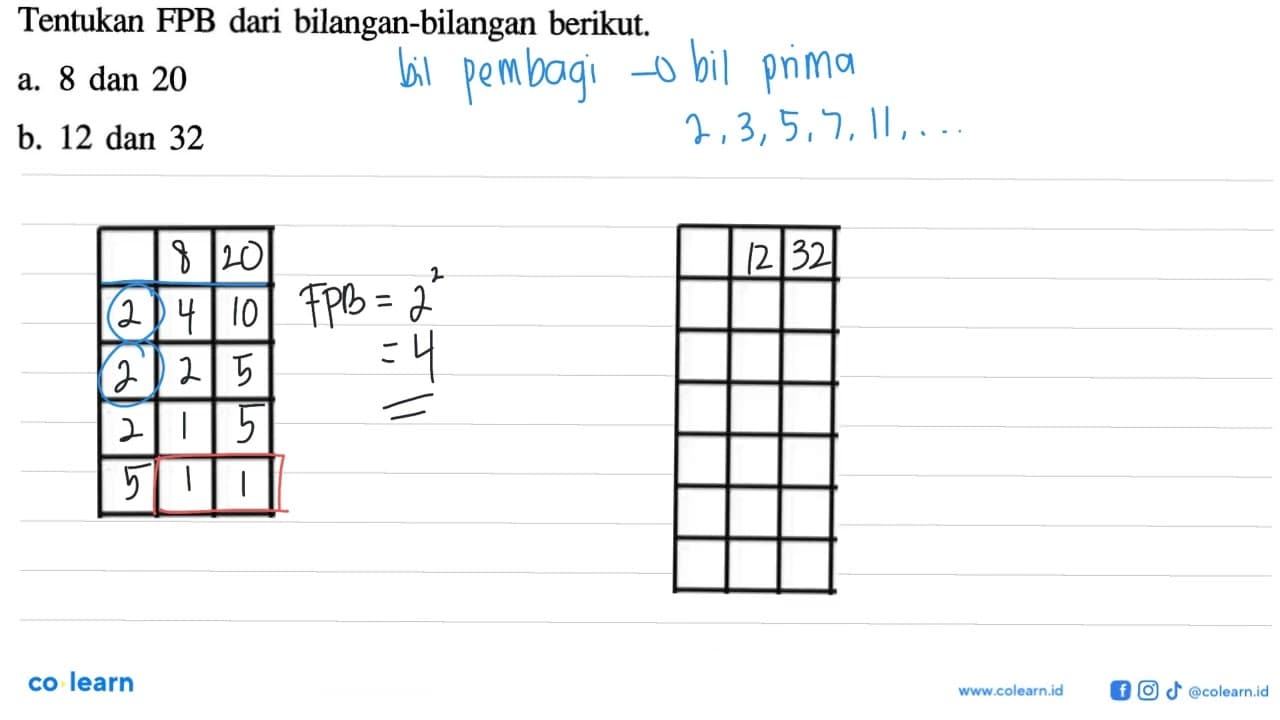 Tentukan FPB dari bilangan-bilangan berikut.
a. 8 dan 20
b. 12 dan 32
bil pembagi → bil prima
2, 3, 5, 7, 11, ....
8 20
2 4 10
2 2 5
2 1 5
5 1 1
FPB = 2²
= 4
12 32
co learn
www.colearn.id
@colearn.id